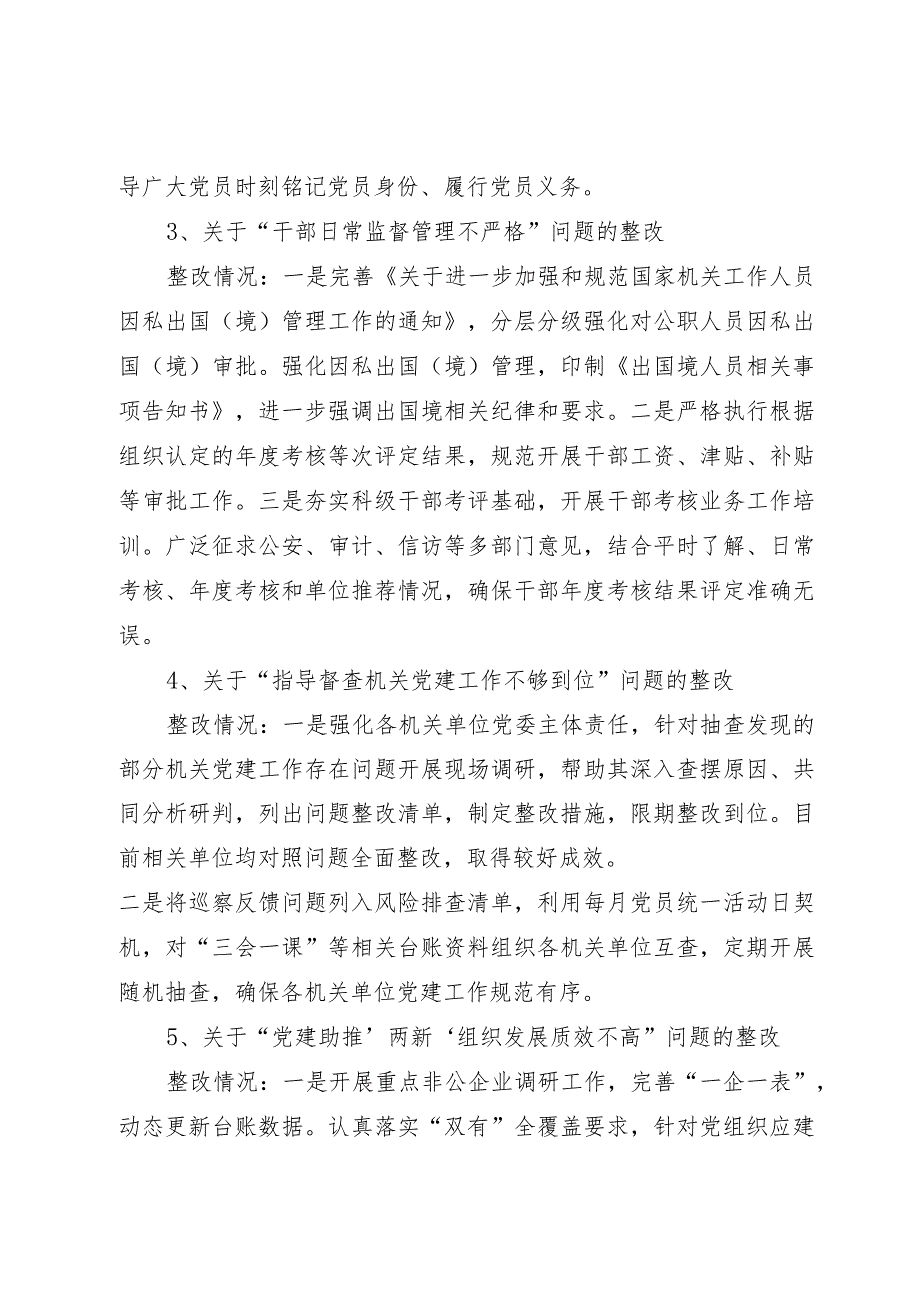 导广大党员时刻铭记党员身份、履行党员义务。
3、关于“干部日常监督管理不严格”问题的整改
整改情况：一是完善《关于进一步加强和规范国家机关工作人员
因私出国（境）管理工作的通知》，分层分级强化对公职人员因私出
国（境）审批。强化因私出国（境）管理，印制《出国境人员相关事
项告知书》，进一步强调出国境相关纪律和要求。二是严格执行根据
组织认定的年度考核等次评定结果，规范开展干部工资、津贴、补贴
等审批工作。三是夯实科级干部考评基础，开展干部考核业务工作培
训。广泛征求公安、审计、信访等多部门意见，结合平时了解、日常
考核、年度考核和单位推荐情况，确保干部年度考核结果评定准确无
误。
4、关于“指导督查机关党建工作不够到位”问题的整改
整改情况：一是强化各机关单位党委主体责任，针对抽查发现的
部分机关党建工作存在问题开展现场调研，帮助其深入查摆原因、共
同分析研判，列出问题整改清单，制定整改措施，限期整改到位。目
前相关单位均对照问题全面整改，取得较好成效。
二是将巡察反馈问题列入风险排查清单，利用每月党员统一活动日契
机，对“三会一课”等相关台账资料组织各机关单位互查，定期开展
随机抽查，确保各机关单位党建工作规范有序。
5、关于“党建助推’两新‘组织发展质效不高”问题的整改
整改情况：一是开展重点非公企业调研工作，完善“一企一表”，
动态更新台账数据。认真落实“双有”全覆盖要求，针对党组织应建